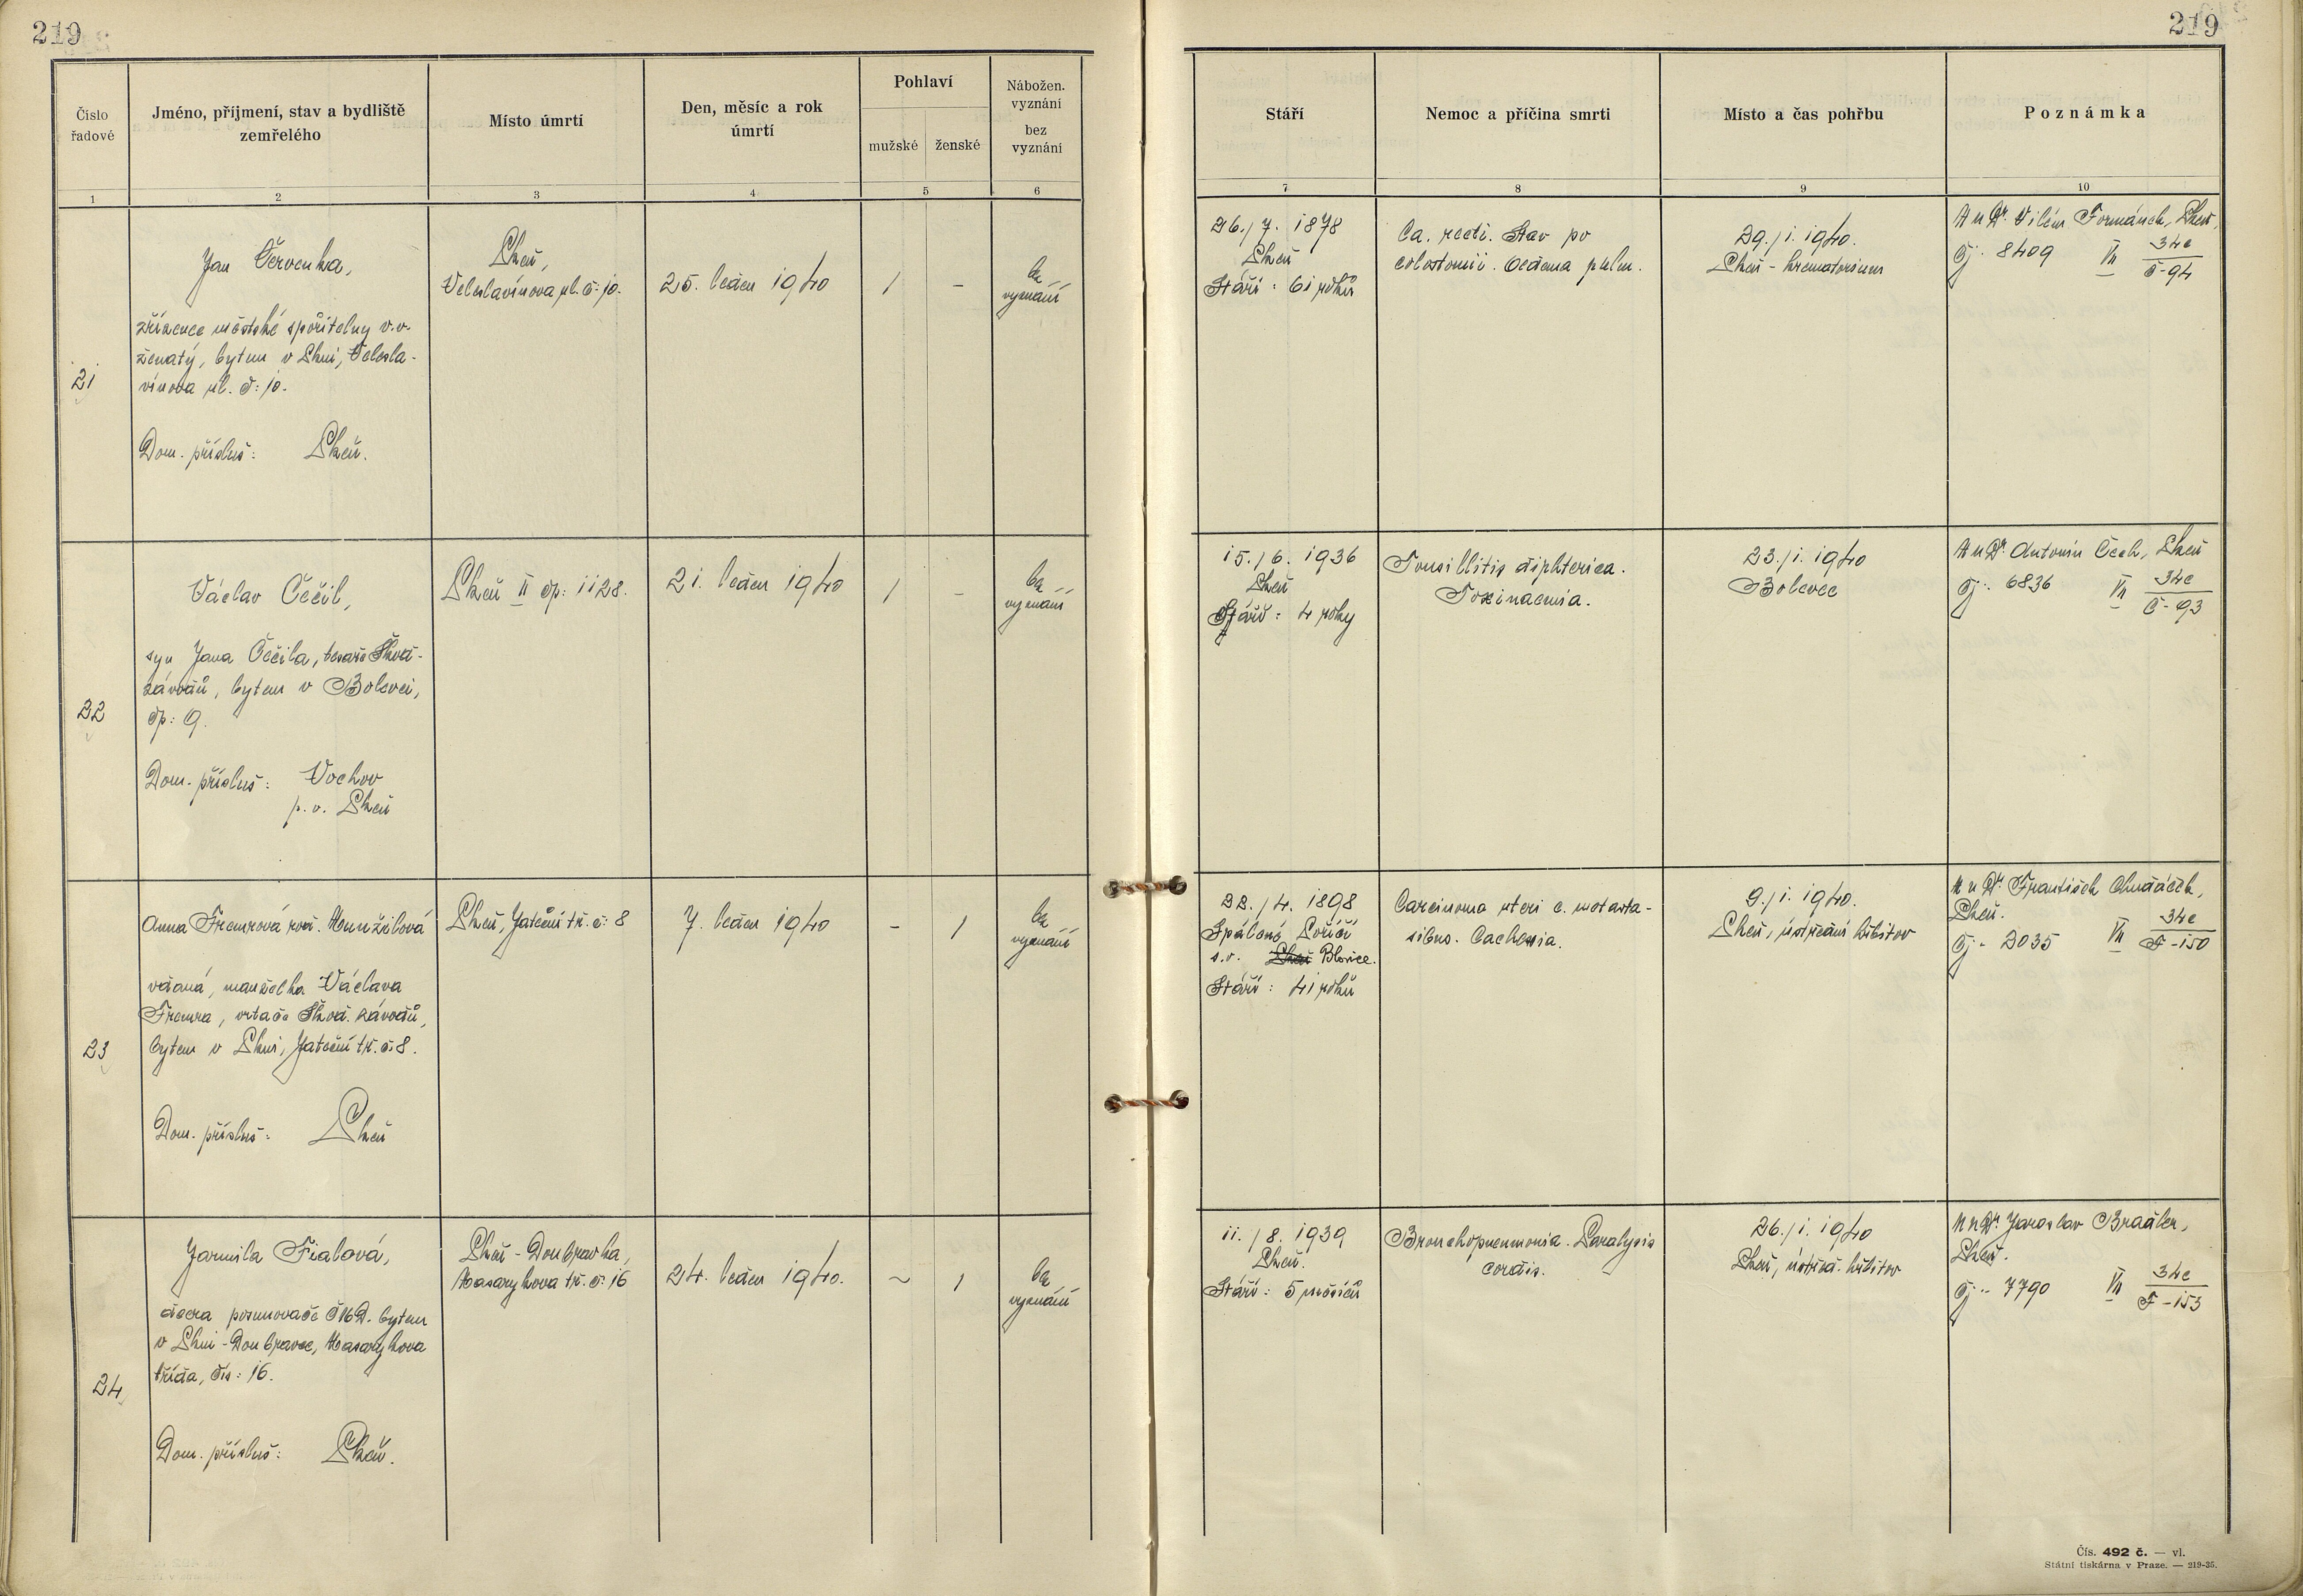 219
219
Číslo řadové
Jméno, příjmení, stav a bydliště
zemřelého
Místo úmrtí
Den, měsíc a rok
úmrtí
Pohlaví
mužské
ženské
Nábožen.
vyznání
bez
vyznání
Stáří
Nemoc a příčina smrti
Místo a čas pohřbu
Poznámka
1
2
3
4
5
6
7
8
9
10
21
Jan Červenka,
zřízenec městské spořitelny v.v.
ženatý, bytem v Plzni, Velesla-
vínova ul. č: 10.
Dom. přísluš: Plzeň.
Plzeň,
Veleslavínova ul. č: 10.
25. leden 1940
1
-
bez
vyznání
26./7. 1878
Plzeň
Stáří: 61 roků
Ca. recti. Stav po
colostomii. Oedema pulm.
29./1. 1940.
Plzeň - krematorium
MuDr. Vilém Formánek, Plzeň,
čj. 8409 VII 34e
č-94
22
Václav Čečil,
syn Jana Čečila, tesaře Škod-
závodů, bytem v Bolevci,
čp: 9.
Dom. přísluš: Vochov
p. o. Plzeň
Plzeň II čp: 1128.
21. leden 1940
1
-
bez
vyznání
15./6. 1936
Plzeň
Stáří: 4 roky
Tonsillitis diphterica.
Toxinaemia.
23./1. 1940
Bolevec
MuDr. Antonín Čech, Plzeň
čj. 6836 VII 34e
Č-93
23
Anna Fremrová roz.
vdaná, manželka Václava
Fremra, vrtače Škod. závodů,
bytem v Plzni, Jateční tř. č: 8.
Dom. přísluš: Plzeň
Plzeň, Jateční tř. č: 8
7. leden 1940
-
1
bez
vyznání
22./4. 1898
Spálené Poříčí
s.o. Plzeň Blovice.
Stáří: 41 roků
Carcinoma uteri c. metasta-
sibus. Cachexia.
9./1. 1940.
Plzeň, ústřední hřbitov
MuDr. František
Plzeň.
čj. 2035 VII 34e
F-150
24
Jarmila Fialová,
dcera posunovače ČMD. bytem
v Plzni - Doubravce, Masarykova
třída, čís: 16.
Dom. přísluš: Plzeň.
Plzeň - Doubravka,
Masarykova tř. č: 16
24. leden 1940.
~
1
bez
vyznání
11./8. 1939
Plzeň.
Stáří: 5 měsíců
Bronchopneumonia. Paralysis
cordis.
26./1. 1940
Plzeň, ústřed. hřbitov
MuDr. Jaroslav Bradler,
Plzeň.
čj. 7790 VII 34e
F-153
Čís. 492 č. — vl.
Státní tiskárna v Praze. — 219-35.